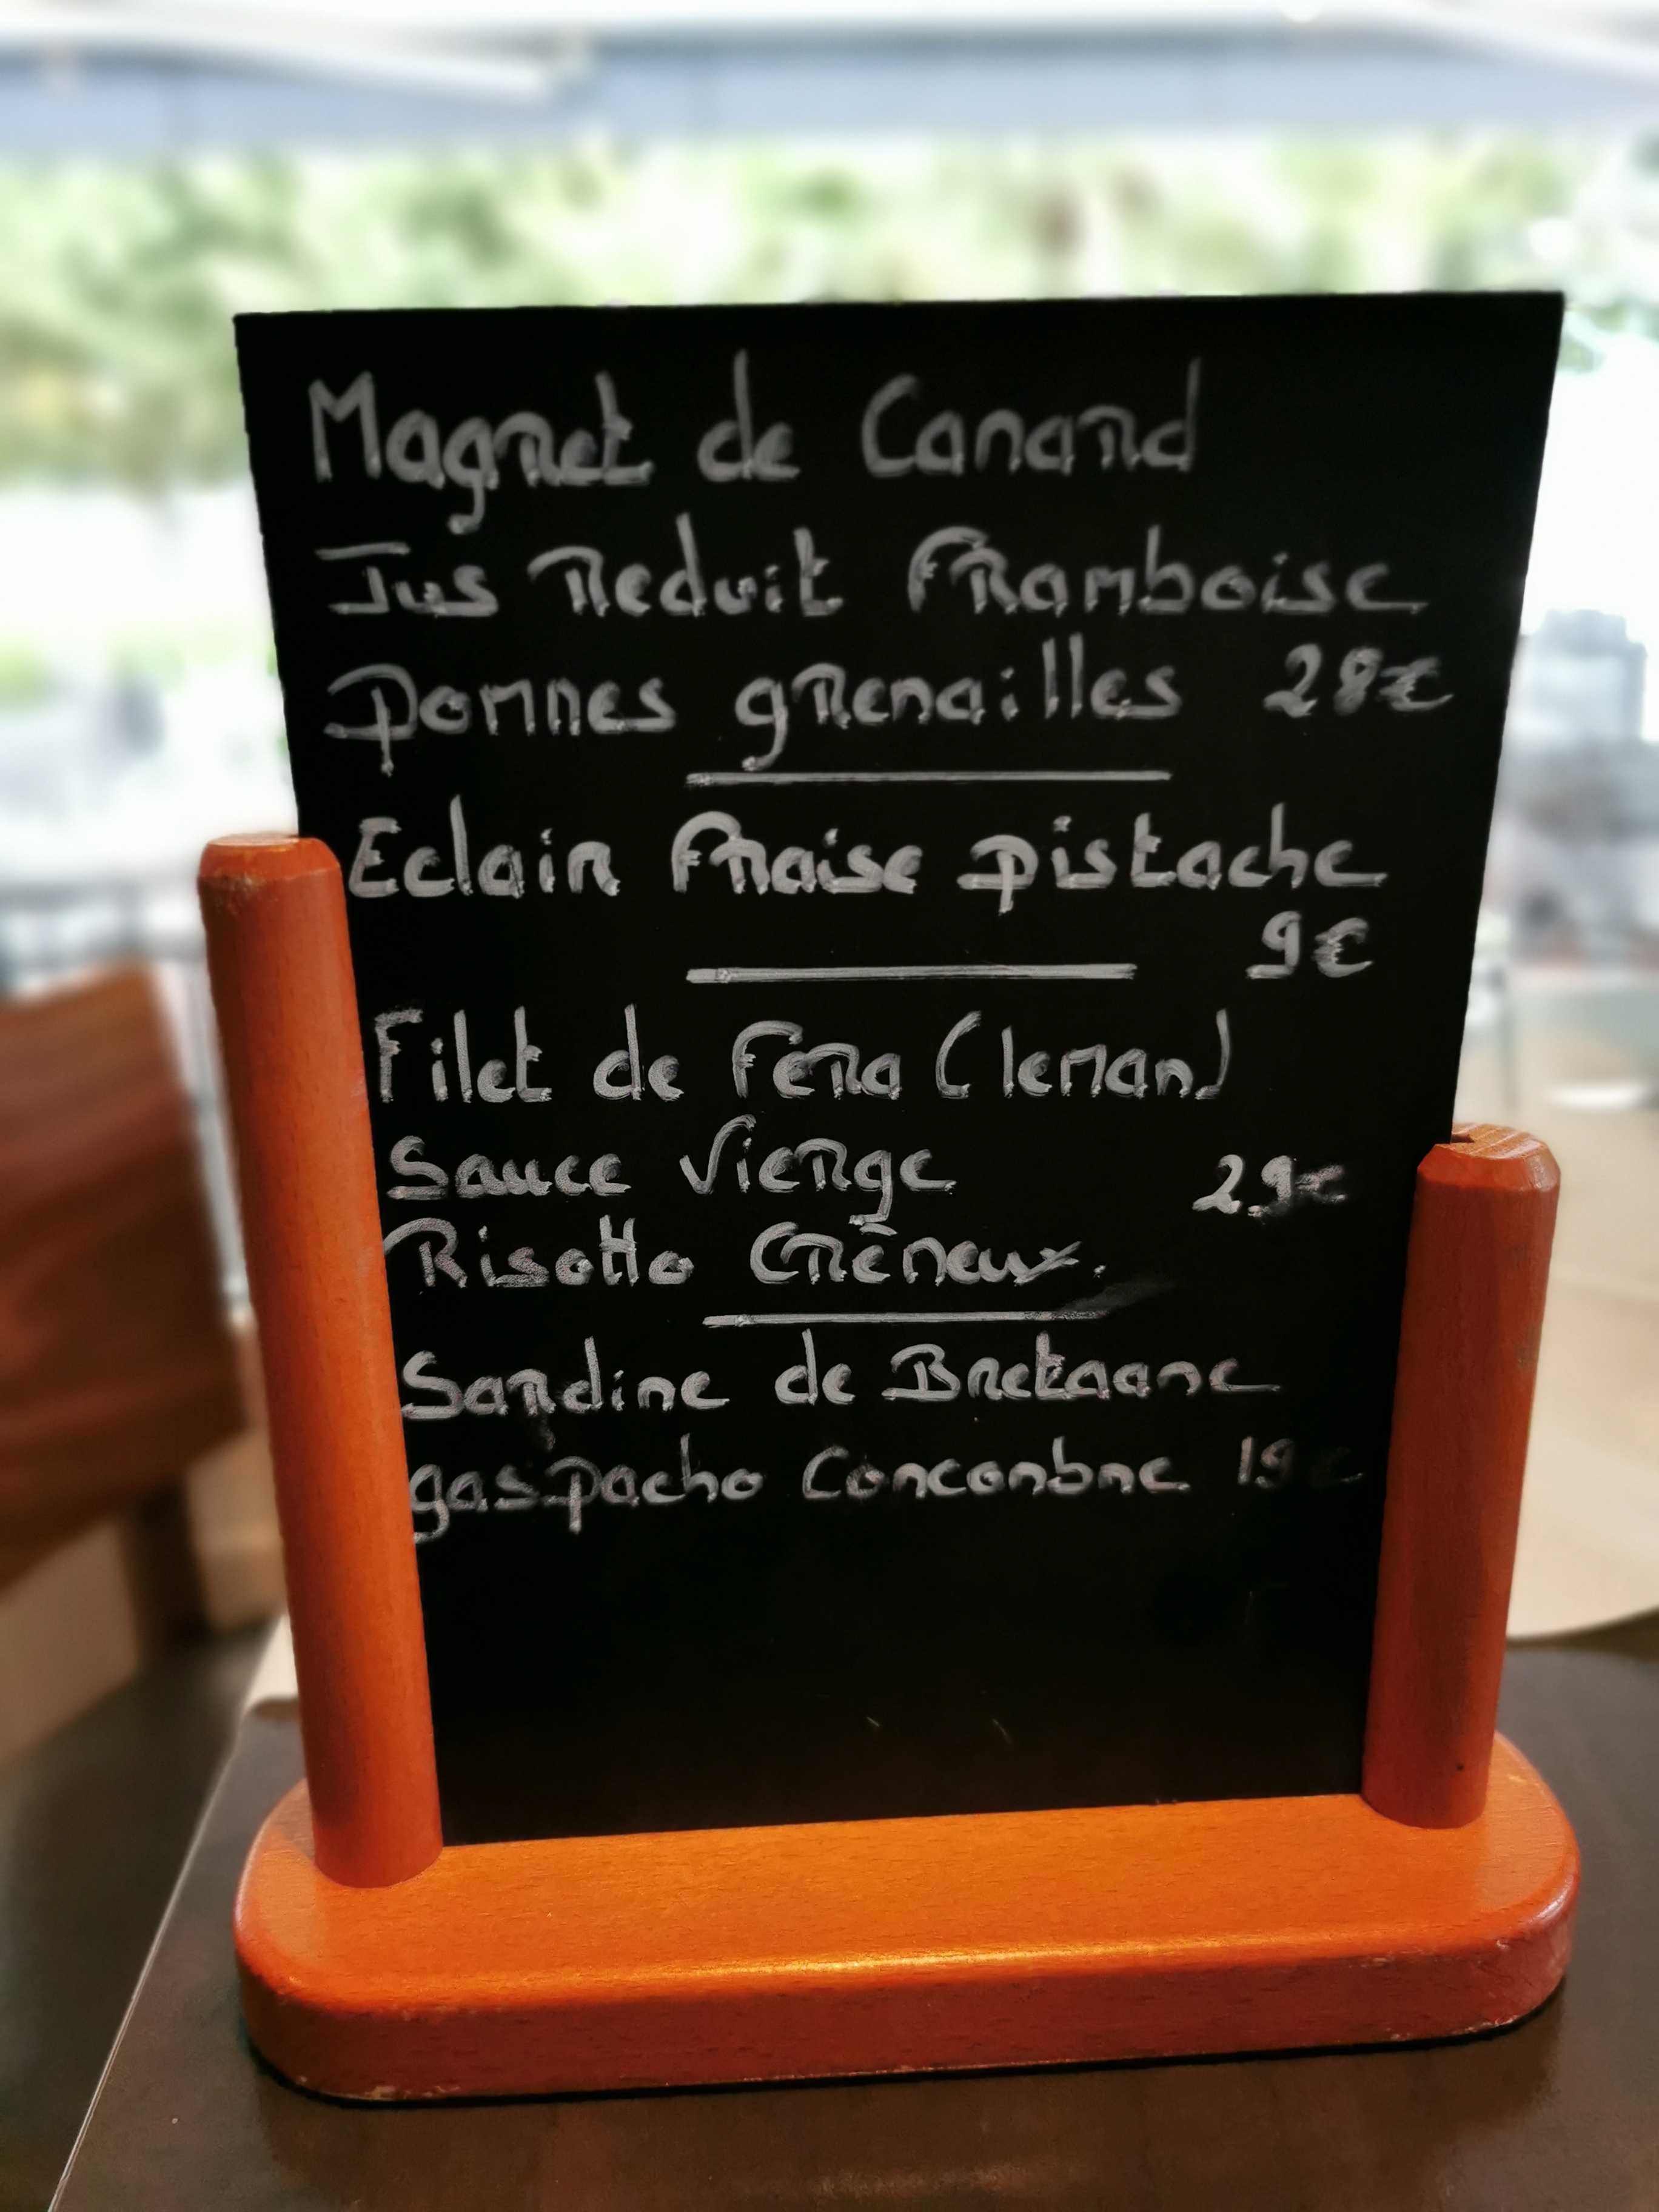 Magret de Canard
Jus Reduit Framboise
pommes grenailles 28€
Eclair Fraise pistache
9€
Filet de Fera (leman)
Sauce Vierge 29€
Risotto Crémeux.
Sardine de Bretagne
gaspacho Concombre 19€